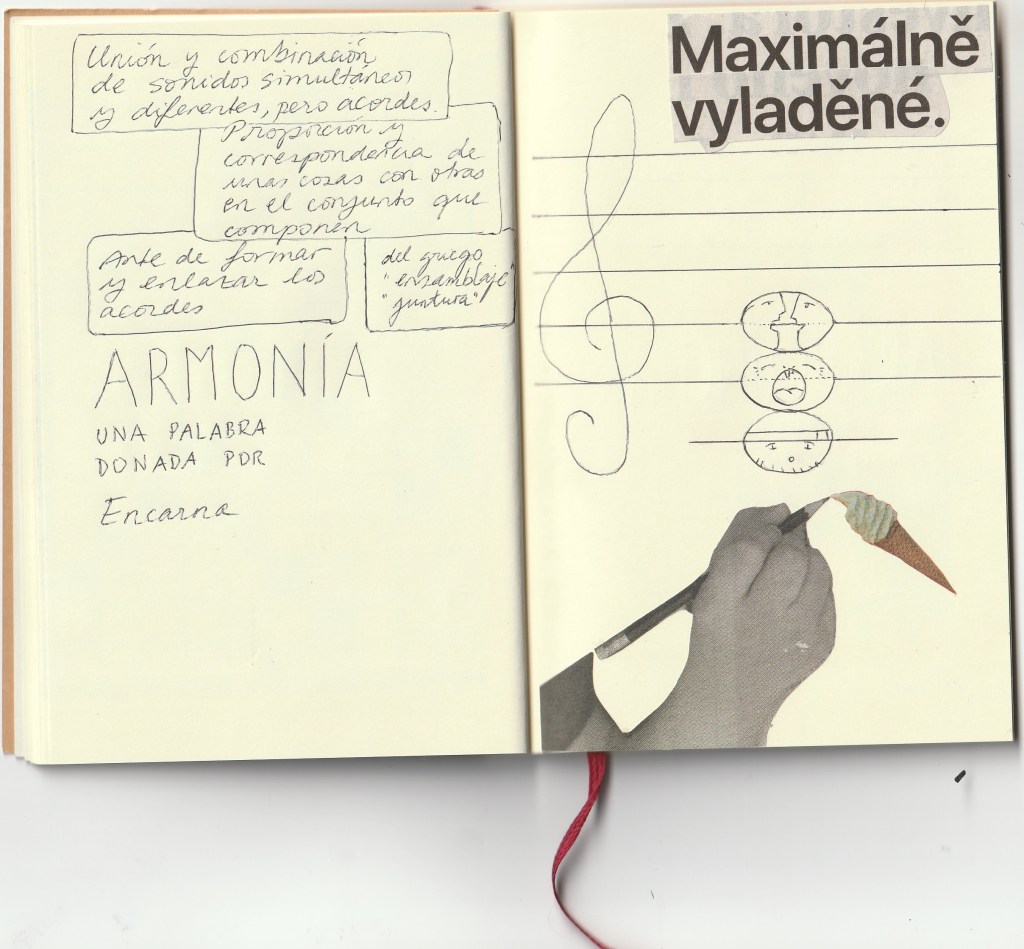 Unión y combinación
de sonidos simultáneos
y diferentes, pero acordes.
Proporción y
correspondencia de
unas cozas con otras
en el conjunto que
componen
Ante de formar
y enlazar los
acordes
del griego
"ensamblaje"
"juntura"
ARMONÍA
UNA PALABRA
DONADA POR
Encarna
Maximálně
vyladěné.